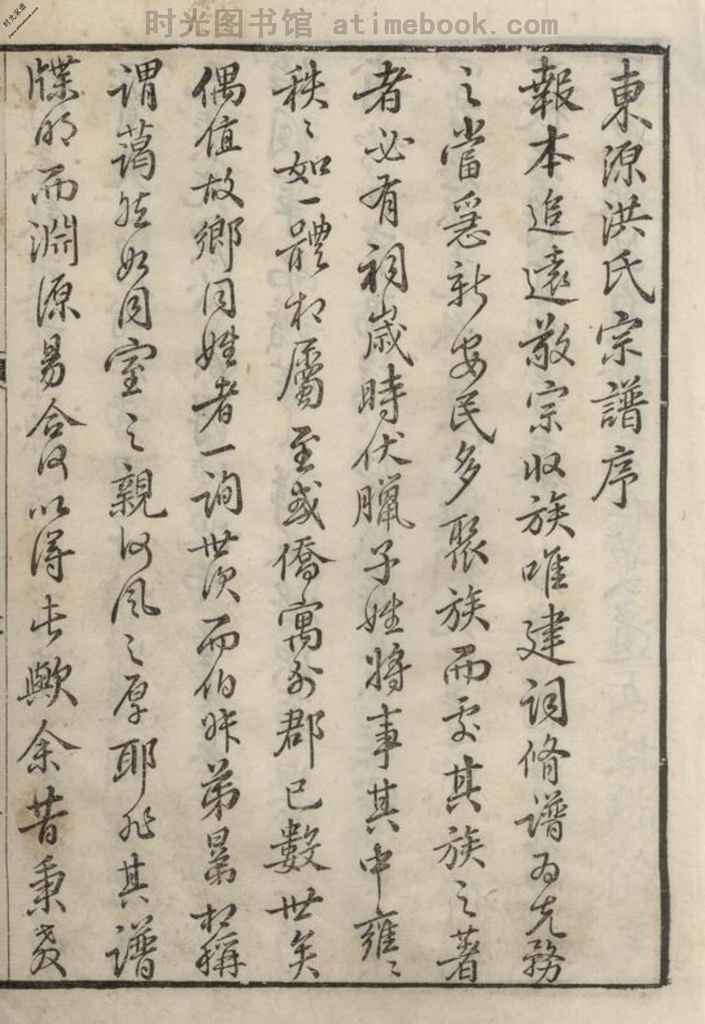 时光图书馆 atimebook.com
東源洪氏宗譜序
報本追遠敬宗收族唯建祠脩譜為先務
之當急新安民多聚族而處其族之著
者必有祠歲時伏臘子姓將事其中雍〻
秩〻如一體相屬至或僑寓外郡已數世矣
偶值故鄉同姓者一詢世次而伯叔弟昆相稱
謂藹然如同室之親何風之厚耶非其譜
牒明而淵源易合何以得此歟余昔秉